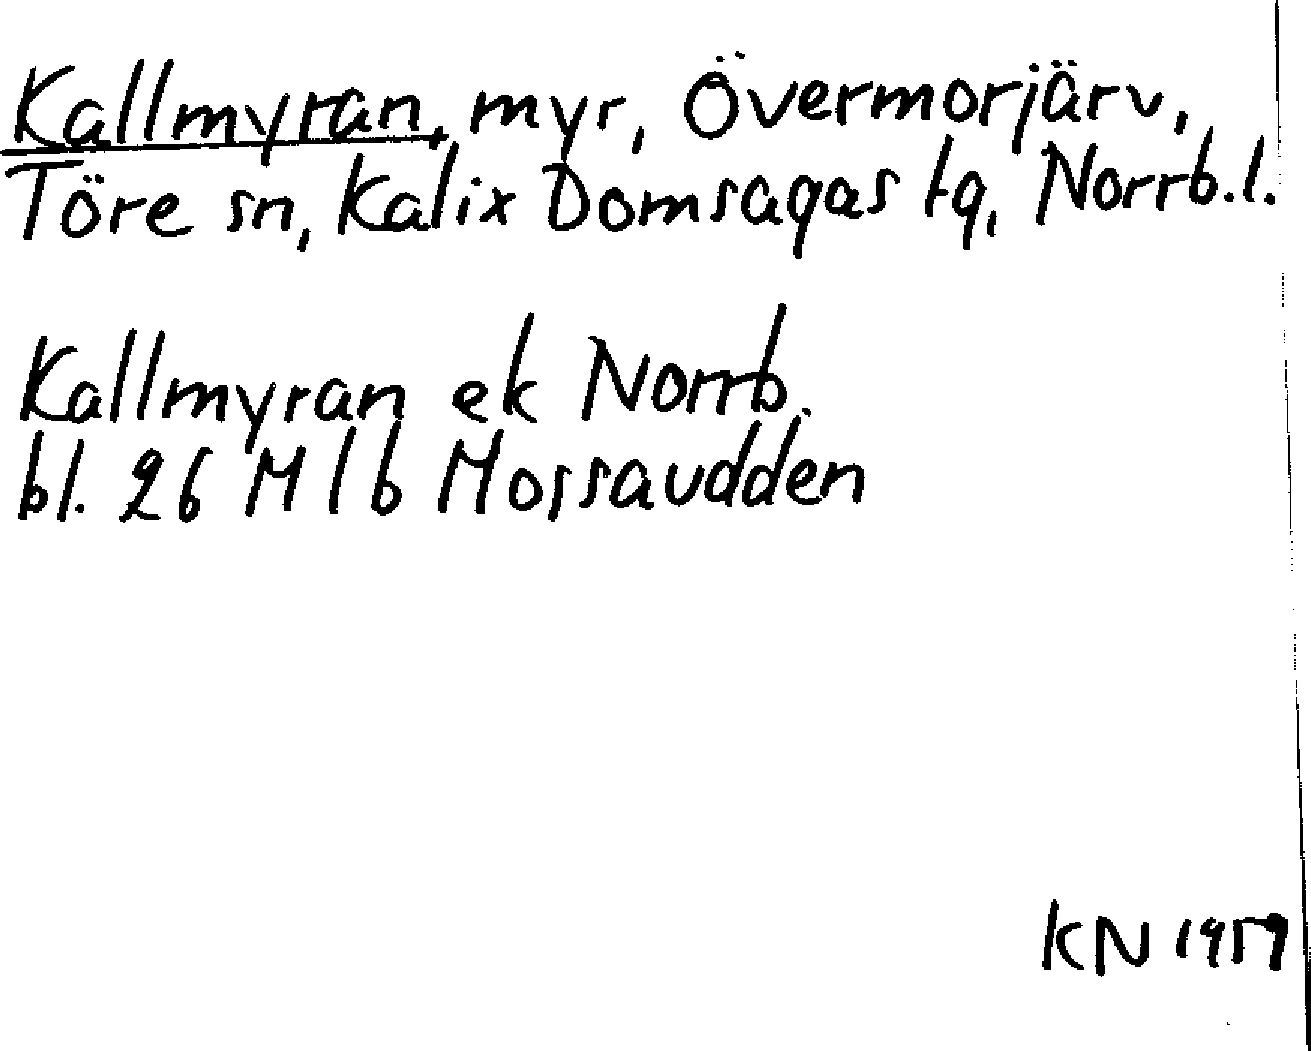 Kallmyran, myr, Övermorjärv,
Töre sn, Kalix Domsagas tg, Norrb.l.
Kallmyran ek Norrb.
bl. 26 M 1 b Mossaudden
KN 1959